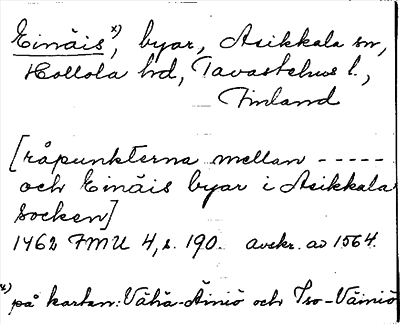 Einäis x), byar, Asikkala sn,
Hollola hd, Tavastehus l.,
Finland
[råpunkterna mellan -----
och Einäis byar i Asikkala
socken]
1462 FMU 4, s. 190. avskr. av 1564.
x) på kartan: Vähä-Äiniö och Iso-Väiniö